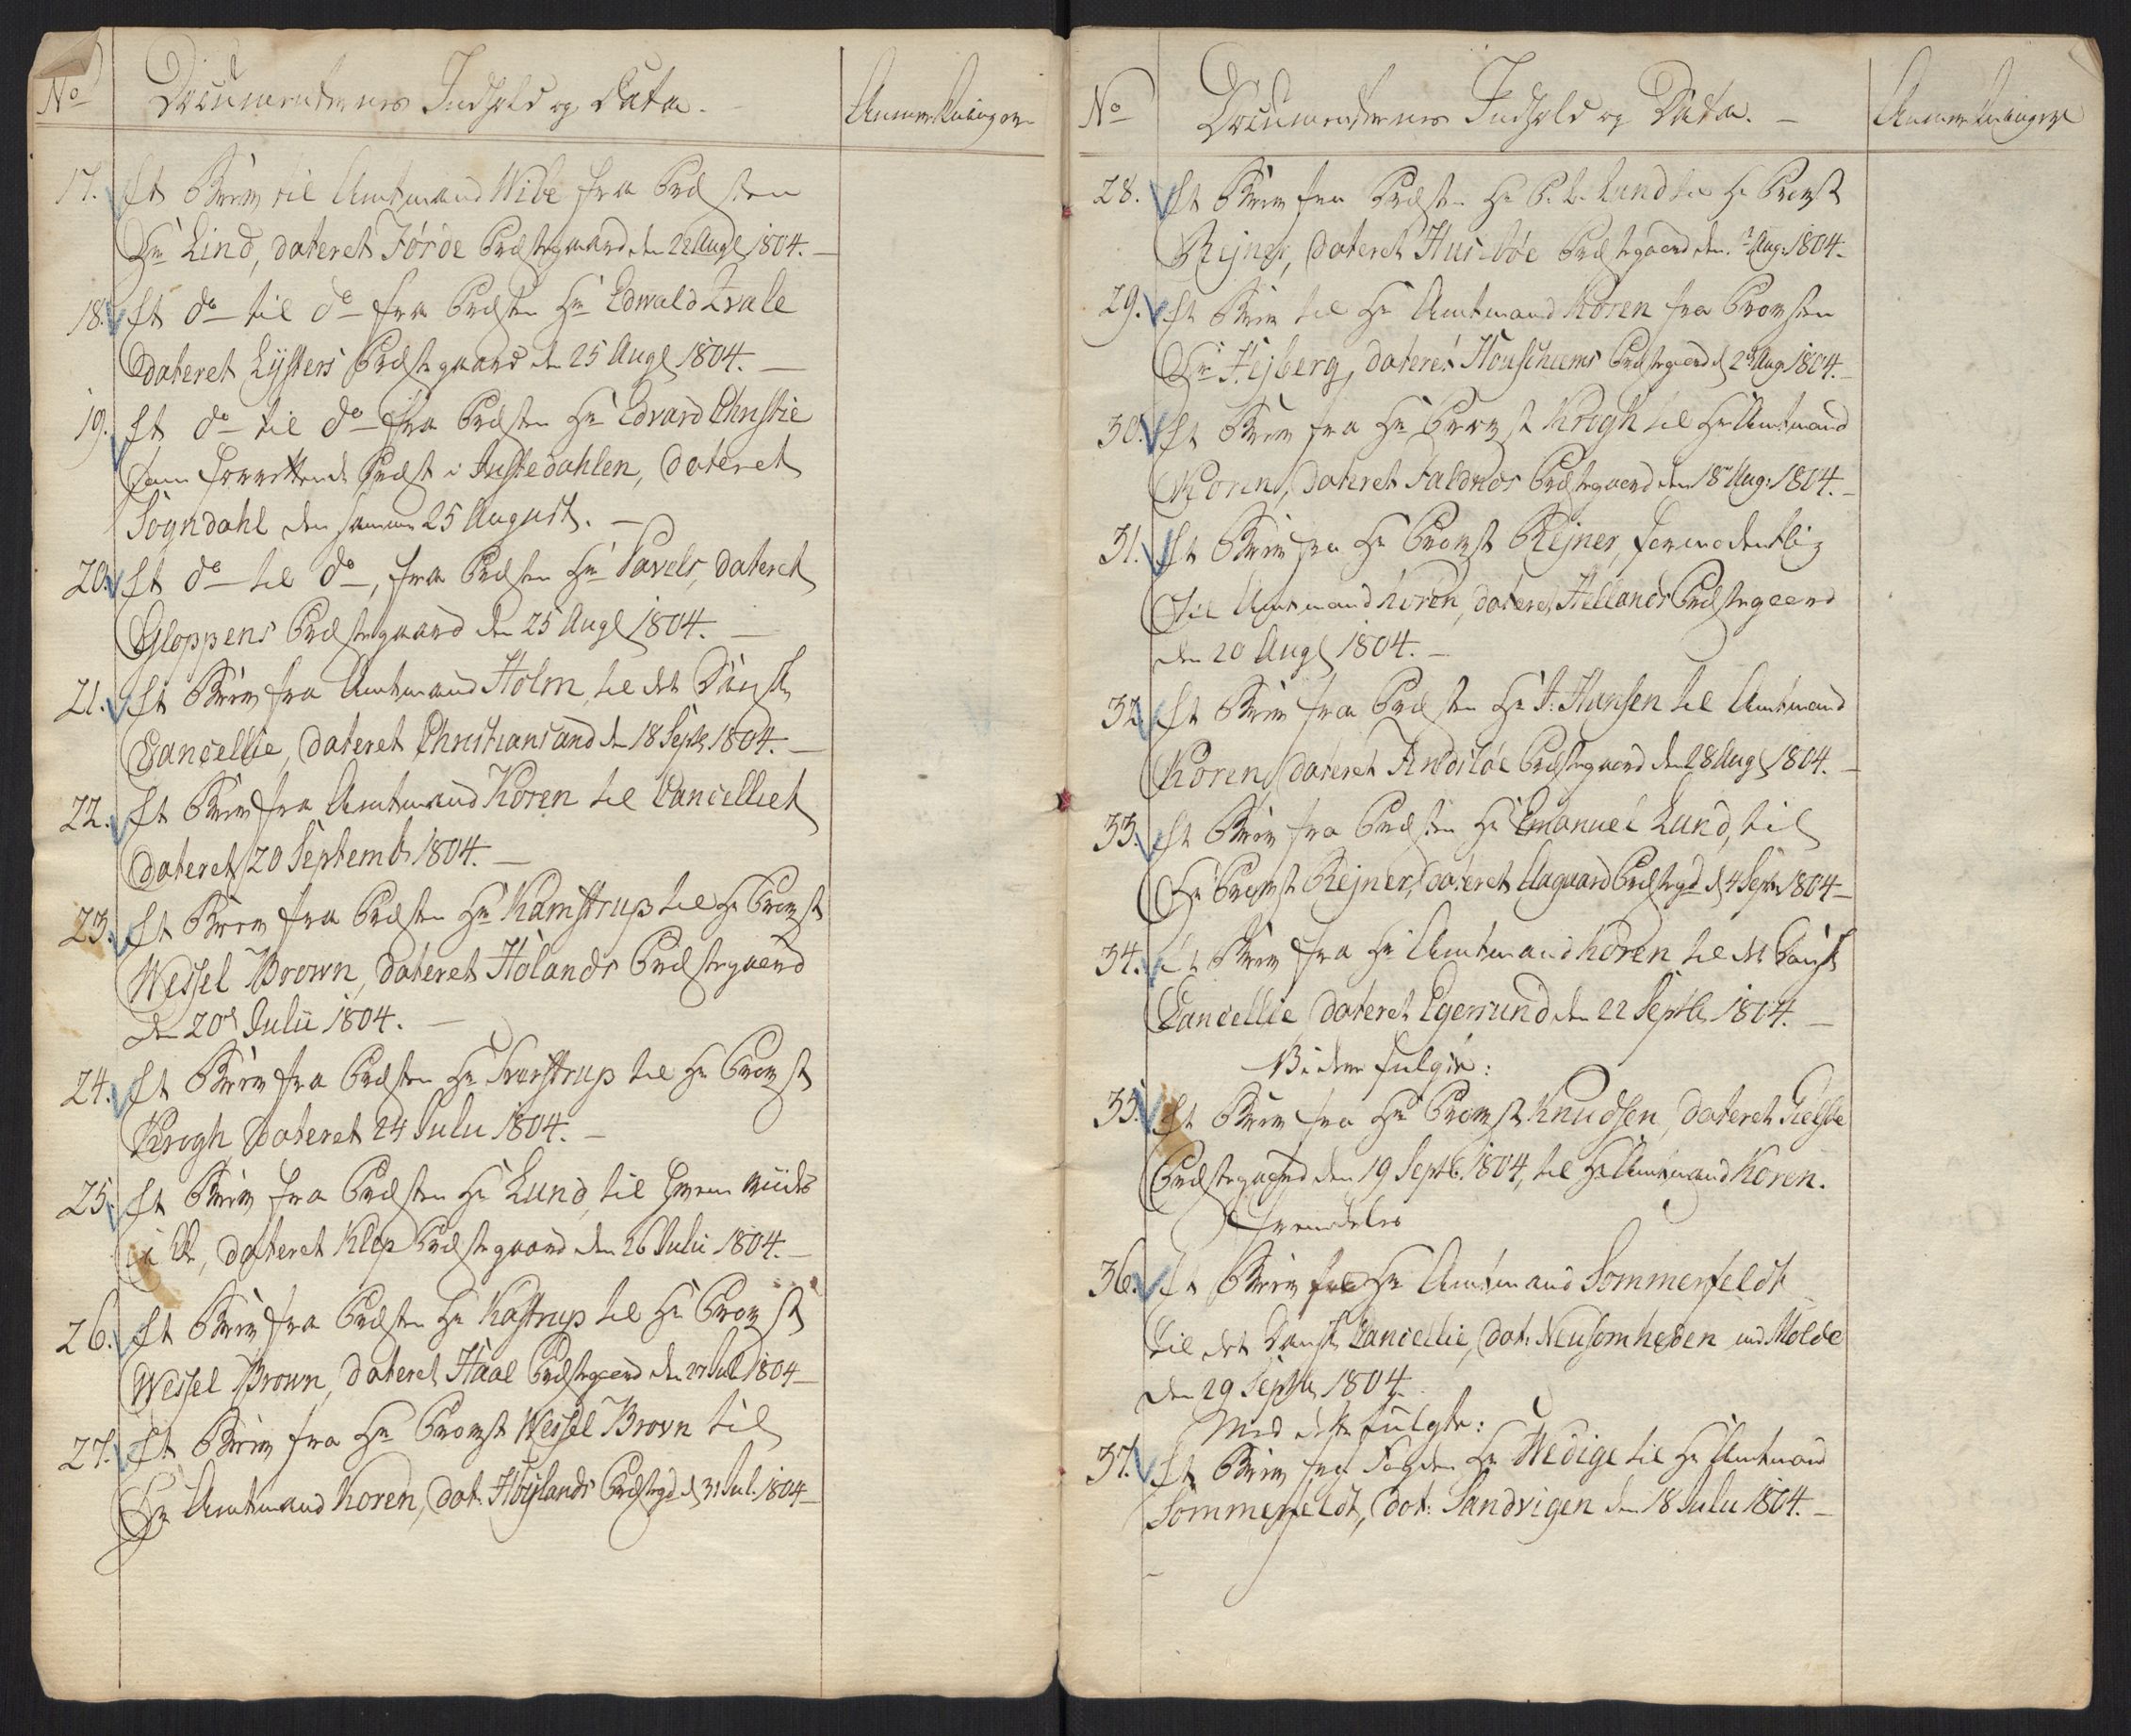 No
Documenternes Indhold og Data.
Anmerkninger
17. Et Brev til Amtmand Wibe fra Præsten
Hr Lind, dateret Førde Præstegaard den 22 Augl 1804. —
18. Et do til do fra Præsten Hr Edwald Tvale
dateret Lysters Præstegaard den 25 Augl 1804. —
19. Et do til do fra Præsten Hr Edvard Christie
som forrettende Præst i Justedahlen, dateret
Sogndahl den samme 25 August. —
20. Et do til do, fra Præsten Hr Pavels, dateret
Gloppens Præstegaard den 25 Augl 1804. —
21. Et Brev fra Amtmand Holm til det Danske
Cancellie, dateret Christiansand d 18 Septb 1804. —
22. Et Brev fra Amtmand Koren til Cancelliet
dateret 20 Septembr 1804. —
23. Et Brev fra Præsten Hr Kamstrup til Hr Provst
Wessel Brown, dateret Hølands Præstegaard
den 20d Julii 1804. —
24. Et Brev fra Præsten Hr Sverstrup til Hr Provst
Krogh, dateret 24 Julii 1804. —
25. Et Brev fra Præsten Hr Lund, til
dateret Klep Præstegaard den 26 Julii 1804. —
26. Et Brev fra Præsten Hr Kastrup til Hr Provst
Wessel Brown, dateret Haae Præstegaard den 27 Jul 1804 —
27. Et Brev fra Hr Provst Wessel Brovn til
Hr Amtmand Koren, dat. Høylands Præstegd d 31 Jul. 1804 —
No
Documenternes Indhold og Data. —
Anmerkninger
28. Et Brev fra Præsten Hr P. L. Lund til Hr Provst
Rejner, dateret Husebøe Præstegaard den Aug: 1804.
29. Et Brev til Hr Amtmand Koren fra Provsten
Hr Hejberg, dateret Houschiems Præstegaard d 23 Aug 1804. —
30. Et Brev fra Hr Provst Krogh til Hr Amtmand
Koren, dateret Faldnæs Præstegaard den 18 Aug: 1804. —
31. Et Brev fra Hr Provst Rejner, formodentlig
til Amtmand Koren, dateret Hellands Præstegaard
den 20 Augl 1804. —
32. Et Brev fra Præsten Hr J: Hansen til Amtmand
Koren, dateret Findsløe Præstegaard den 28 Augl 1804. —
33. Et Brev fra Præsten Hr Emanuel Lund, til
Hr Provst Rejner, dateret Aagaard Præstegd d 4 Septr 1804 —
34. Et Brev fra Hr Amtmand Koren til det Danske
Cancellie dateret Egersund den 22 Septbr 1804. —
Videre fulgte:
35. Et Brev fra Hr Provst Knudsen, dateret Hielse
Præstegaard den 19 Septb. 1804, til Hr Amtmand Koren.
Fremdeles
36. Et Brev fra Hr Amtmand Sommerfeldt
til det Danske Cancellie, dat: Neusomheden ved Molde
den 29 Septbr 1804.
Med dette fulgte:
37. Et Brev fra Fogden Hr Wedige til Hr Amtmand
Sommerfeldt, dat: Sandvigen den 18 Julii 1804. —